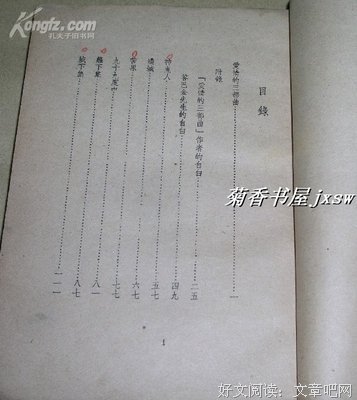 Kongfz.com
孔夫子旧书网
目錄
愛情的三部曲……一
附錄
「愛情的三部曲」作者的自白……二五
答巴金先生的自白……四九
神鬼人……五七
邊城……六七
苦果……七七
九十九度中……八一
籬下集……八七
1
菊香书屋jxsw
好文阅读：文章吧网